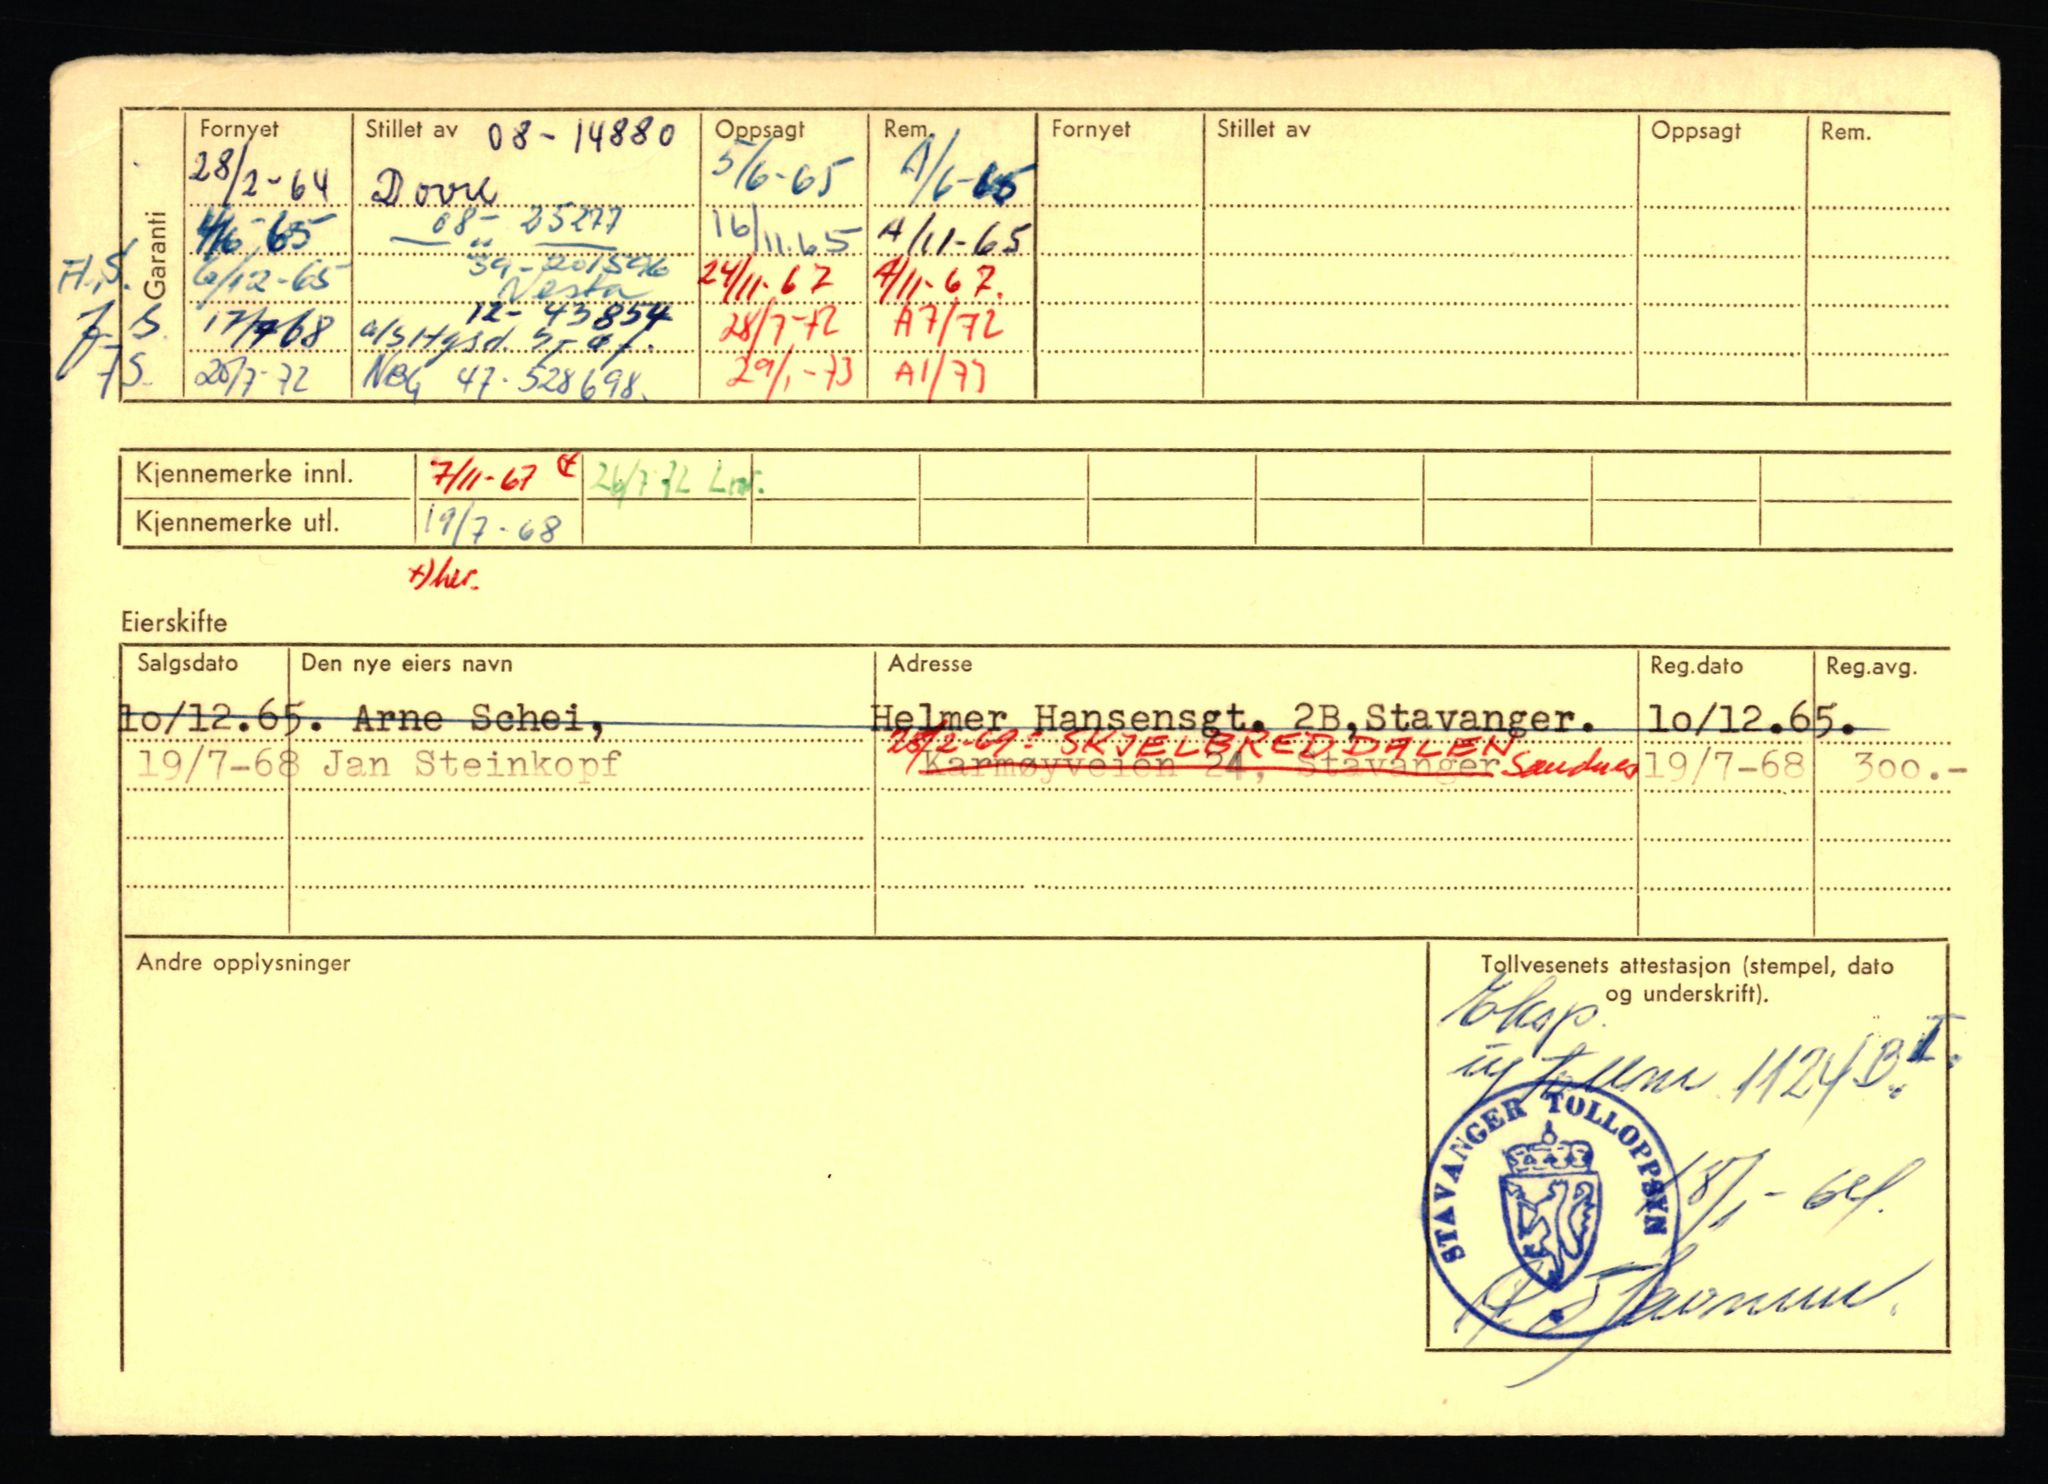 Garanti
Fornyet Stillet av 08-14880 Oppsagt Rem. Fornyet Stillet av Oppsagt Rem.
28/2-64 Dovre 5/6-65 A/6-65
4/6-65 08-25277 16/11.65 A/11-65
H.S. 6/12-65 39-201596 Vesta 24/11-67 A/11-67.
J.S. 17/7-68 12-43854 28/7-72 A7/72
J.S. 28/7-72 NBG 47-528698. 29/1-73 A1/73
Kjennemerke innl. 7/11-67 26/7-72
Kjennemerke utl. 19/7-68
+) her.
Eierskifte
Salgsdato Den nye eiers navn Adresse Reg.dato Reg.avg.
10/12.65. Arne Schei, Helmer Hansensgt. 2B,Stavanger. 10/12.65.
28/2-69: SKJELBREDDALEN Sandnes
19/7-68 Jan Steinkopf Karmøyveien 24, Stavanger 19/7-68 300.-
Andre opplysninger
Tollvesenets attestasjon (stempel, dato
og underskrift).
Eksp.
1124 B. I.
STAVANGER TOLLOPPSYN
18/1-64.